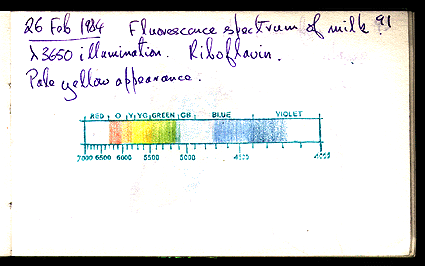 26 Feb 1984 Fluorescence spectrum of milk 91
λ3650 illumination. Riboflavin.
Pale yellow appearance.
RED O Y YG GREEN GB BLUE VIOLET
7000 6500 6000 5500 5000 4500 4000